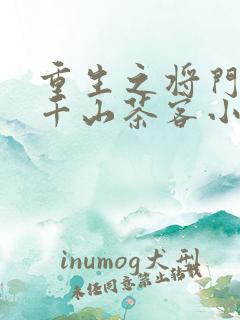 重生之将门
千山茶客小
inumog犬刑
未经同意禁止转载